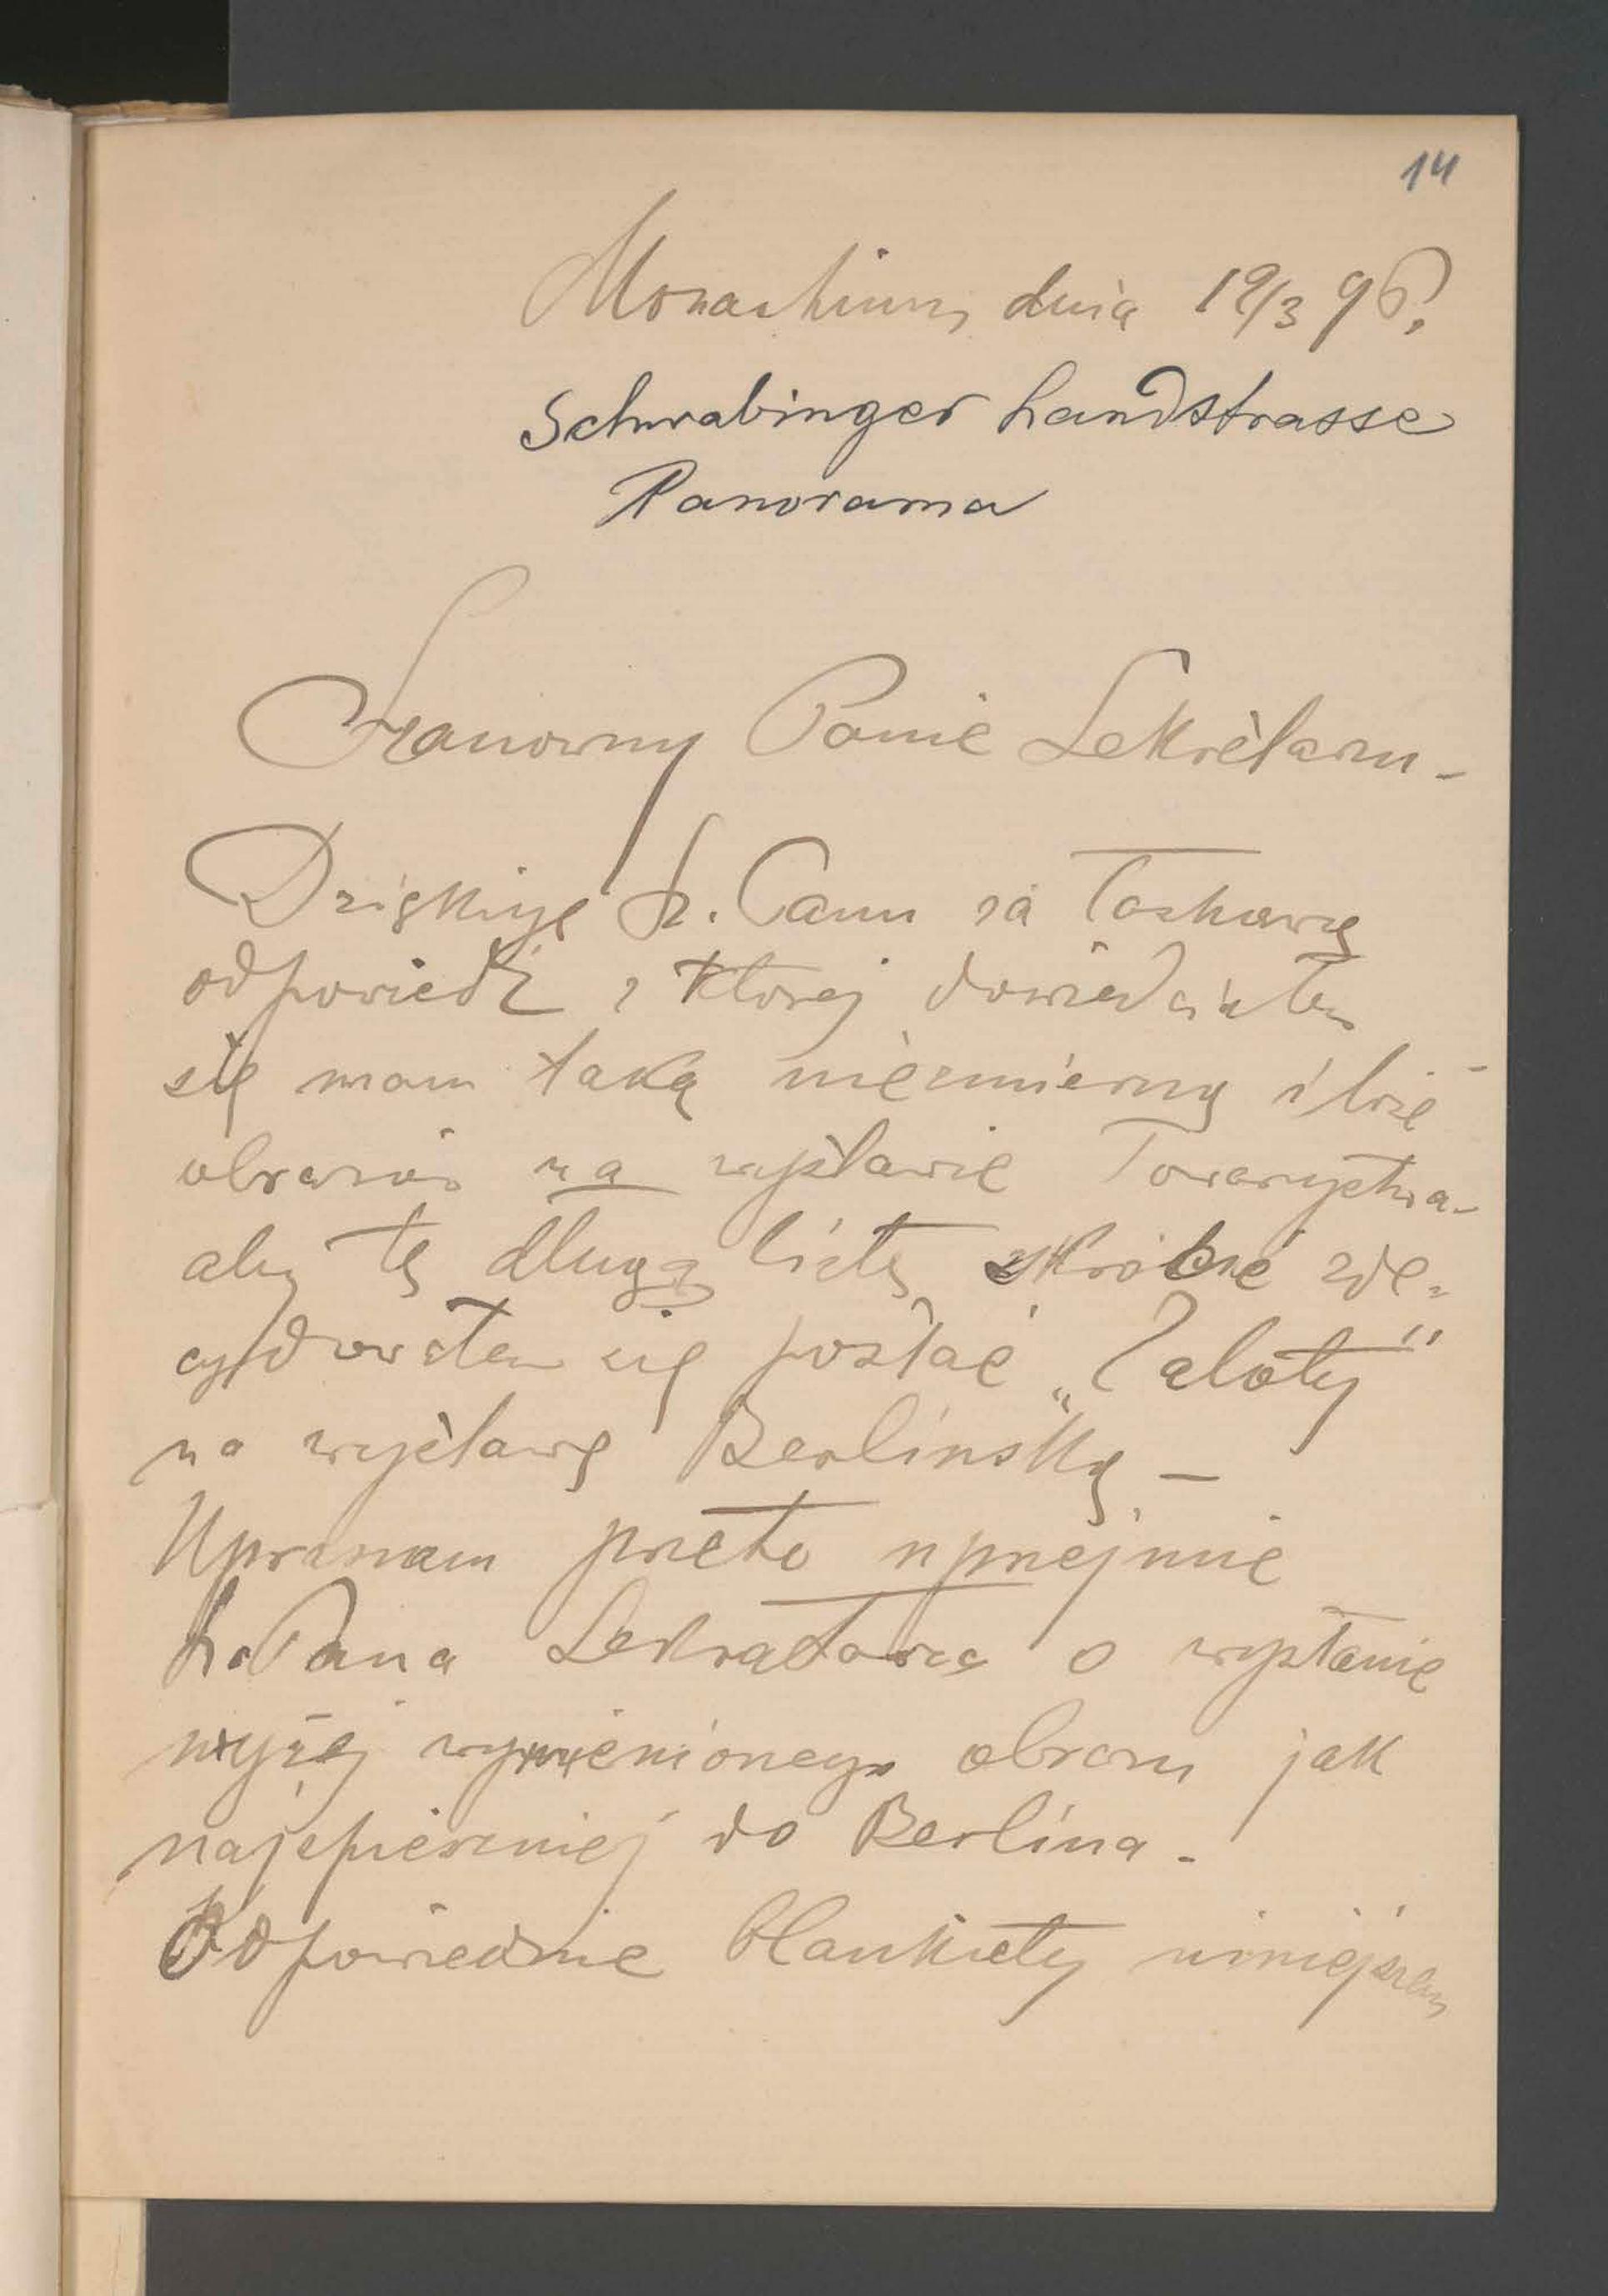 14
Monachium, dnia 19/3 96.
Schwabinger Landstrasse
Panorama
Szanowny Panie Sekretarzu -
Dziękuję Sz. Panu za łaskawą
odpowiedź z której dowiedziałem
się mam taką niezmierną ilość
obrazów na wystawie Towarzystwa -
aby tę długą listę skrócić zde-
cydowałem się posłać „Zaloty"
na wystawę Berlińską —
Upraszam przeto uprzejmie
Sz. Pana Sekretarza o wysłanie
wyżej wymienionego obrazu jak
najspieszniej do Berlina -
Odpowiednie blankiety niniejszem